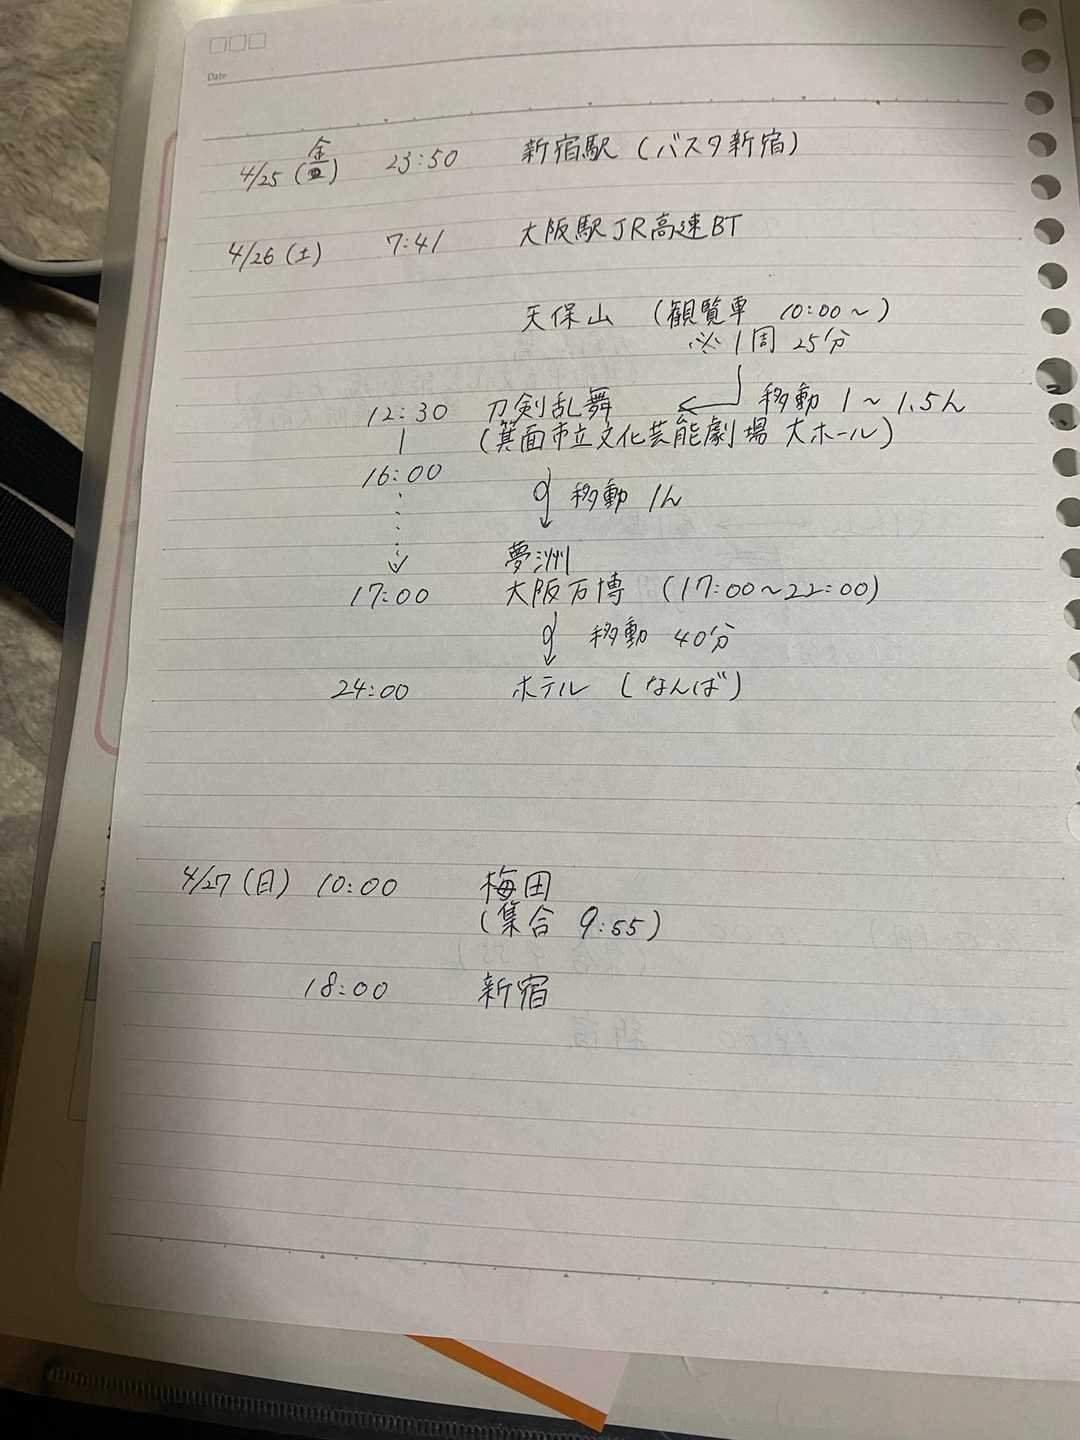 Date
4/25 (金) 23:50 新宿駅 (バスタ新宿)
4/26 (土) 7:41 大阪駅JR高速BT
天保山 (観覧車 10:00〜)
※1周 25分
12:30 刀剣乱舞 ← 移動 1〜1.5h
| (箕面市立文化芸能劇場 大ホール)
16:00
↓ 移動 1h
夢洲
17:00 大阪万博 (17:00〜22:00)
↓ 移動 40分
24:00 ホテル (なんば)
4/27 (日) 10:00 梅田
(集合 9:55)
18:00 新宿